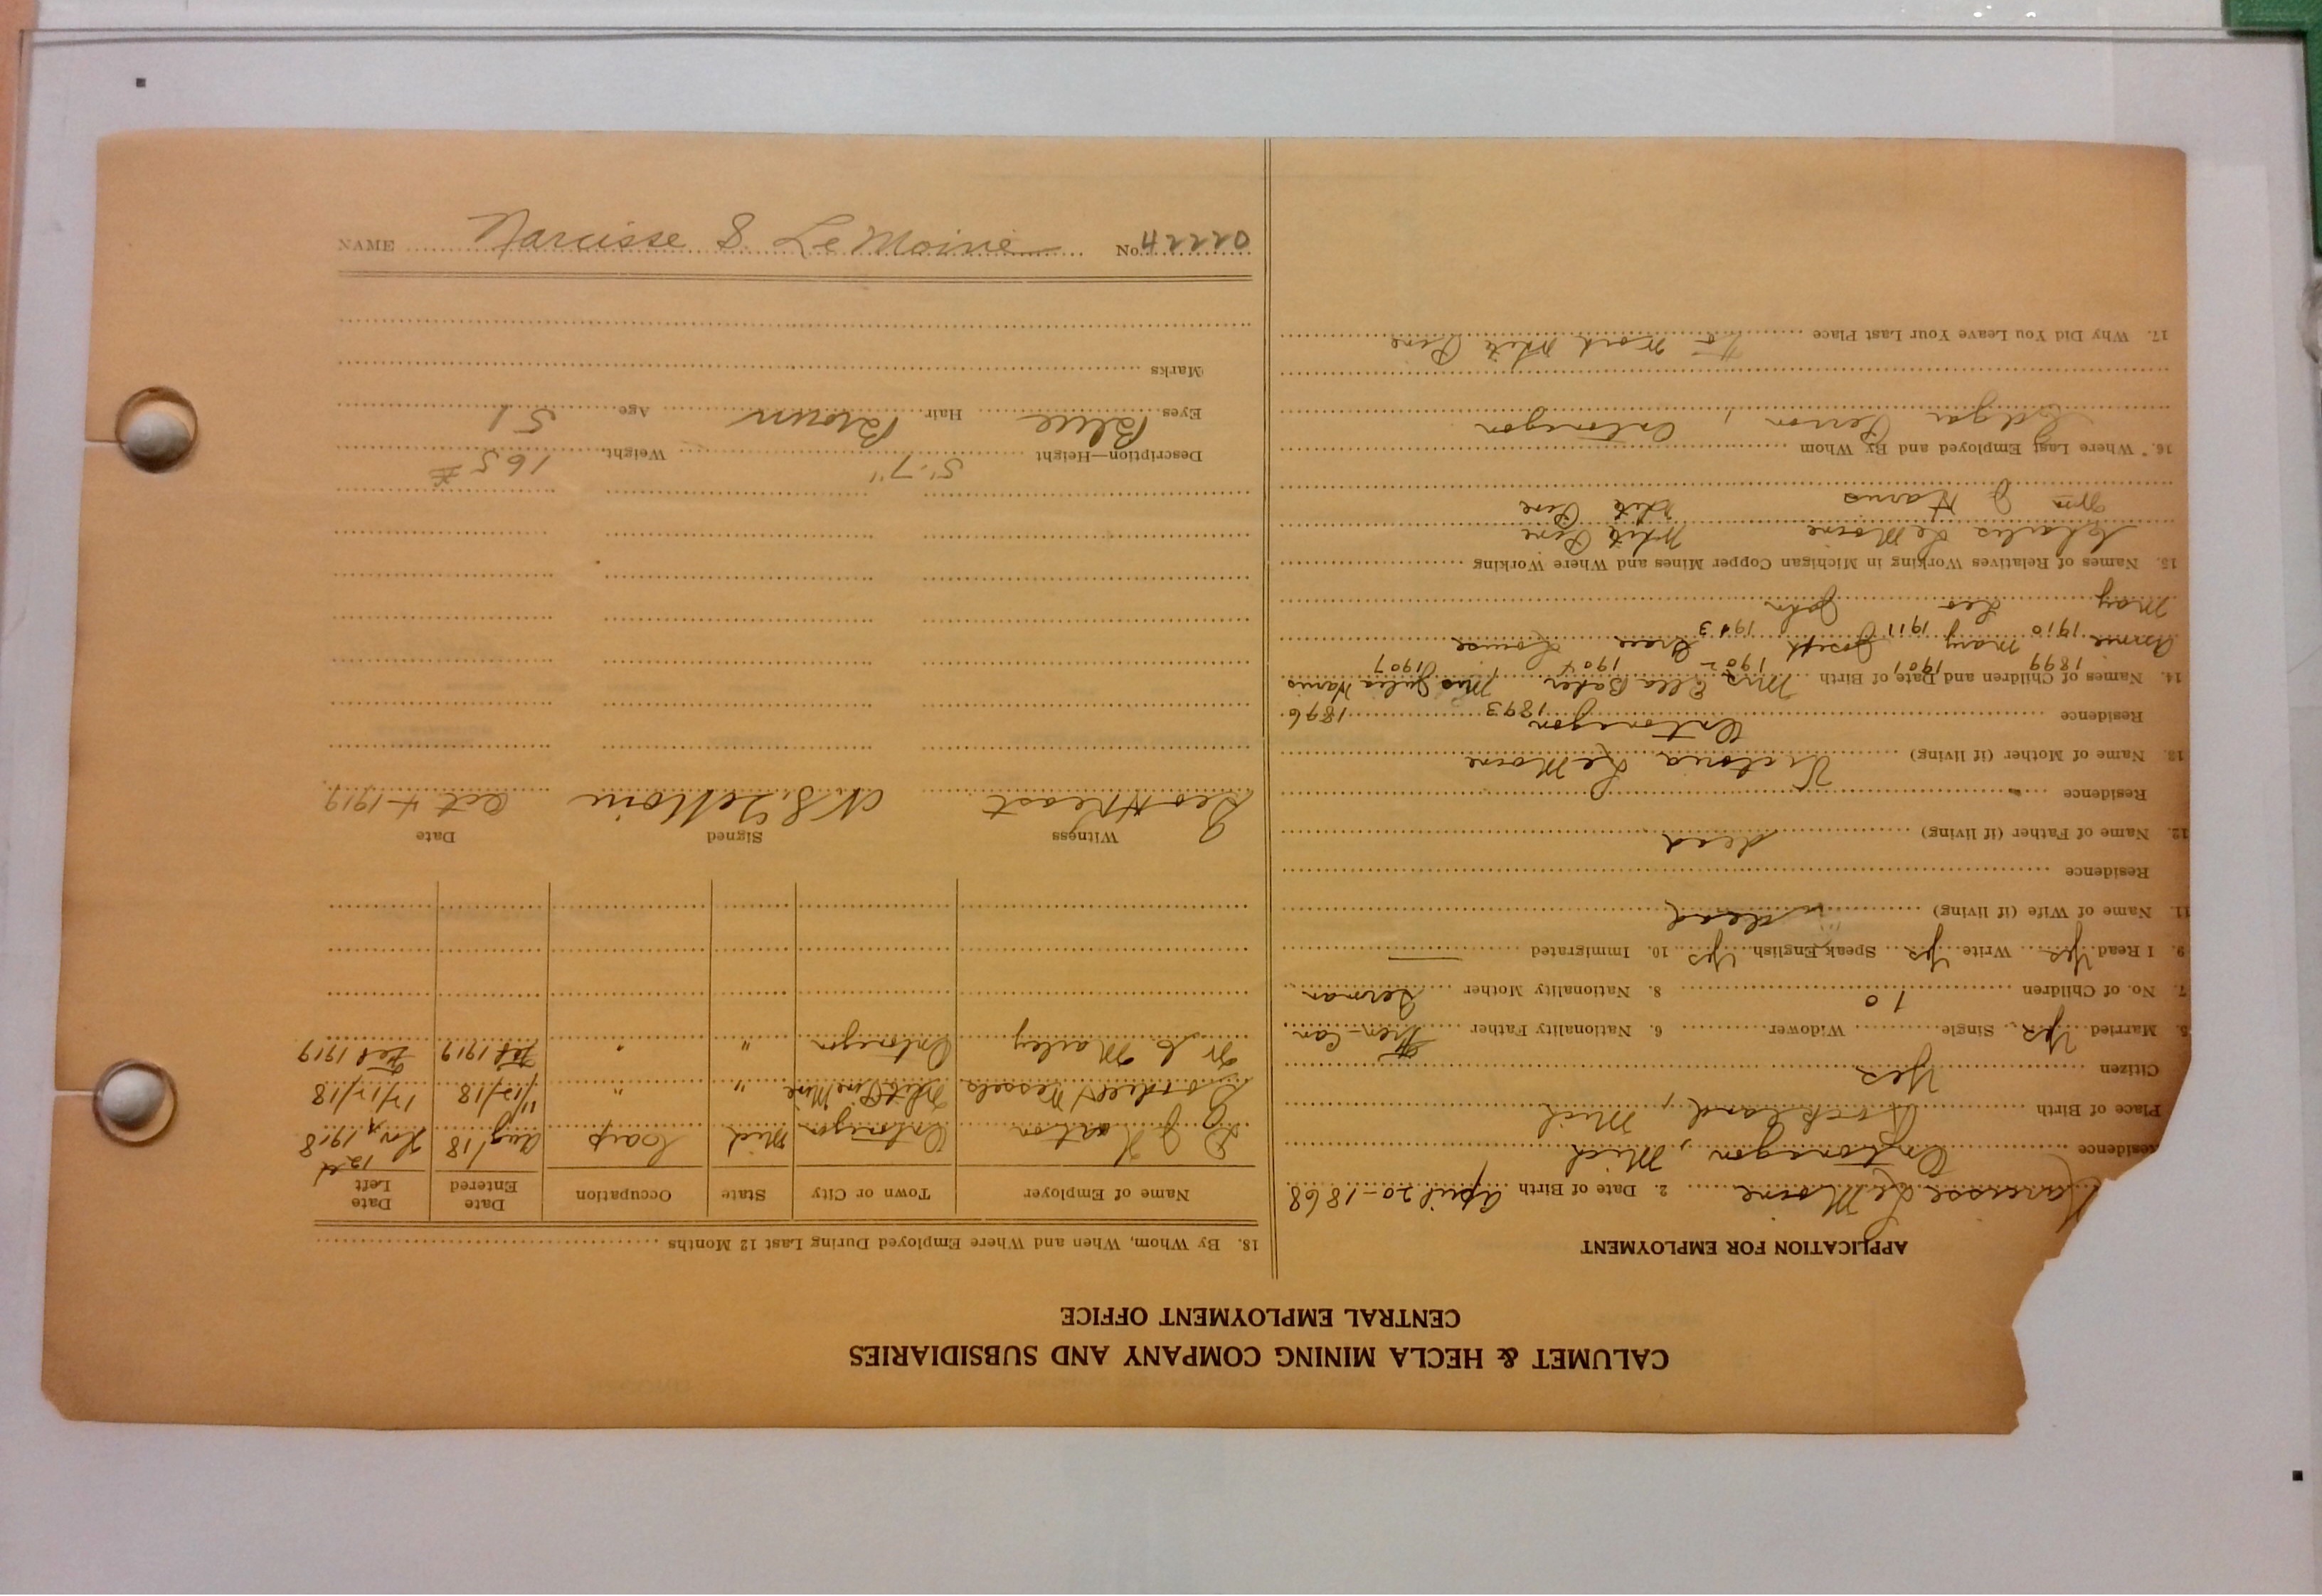 CALUMET & HECLA MINING COMPANY AND SUBSIDIARIES
CENTRAL EMPLOYMENT OFFICE
APPLICATION FOR EMPLOYMENT
Narcisse LeMoine 2. Date of Birth April 20-1868
Residence Ontonagon, Mich
Place of Birth Rockland, Mich
Citizen Yes
5. Married Yes Single Widower 6. Nationality Father Fren-Can
7. No. of Children 10 8. Nationality Mother German
9. I Read Yes Write Yes Speak English Yes 10. Immigrated
11. Name of Wife (if living) dead
Residence
12. Name of Father (if living) dead
Residence
13. Name of Mother (if living) Victoria LeMoine
Residence Ontonagon 1893 1896
14. Names of Children and Date of Birth Mrs Ella Baker Mrs Julia Harris
1899 1901 1902 1904 1907
Annie Mary Joseph Grace Louise
1910 1911 1913
May Leo John
15. Names of Relatives Working in Michigan Copper Mines and Where Working
Charles LeMoine White Pine
Wm J Harris White Pine
16. Where Last Employed and By Whom
Edgar Perron, Ontonagon
17. Why Did You Leave Your Last Place To Work White Pine
18. By Whom, When and Where Employed During Last 12 Months
Name of Employer Town or City State Occupation Date Entered Date Left
D J Norton Ontonagon Mich Carp Aug '18 Nov 12th 1918
White Pine Mine " " 11/12/18 12/17/18
Mailey Ontonagon " " Feb 1919 Feb 1919
Witness Signed Date
Geo H Neast N. S. LeMoine Oct 4-1919
Description—Height 5'-7" Weight 165#
Eyes Blue Hair Brown Age 51
Marks
NAME Narcisse S. LeMoine No. 42220